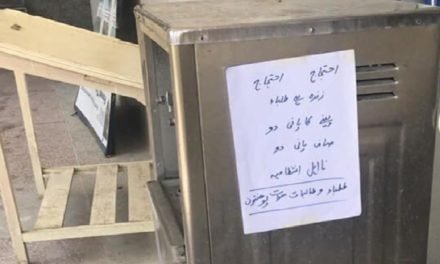 احتجاج احتجاج
زندہ ہے طلباء
پینے کا پانی دو
صاف پانی دو
نااہل انتظامیہ
طلباء و طالبات